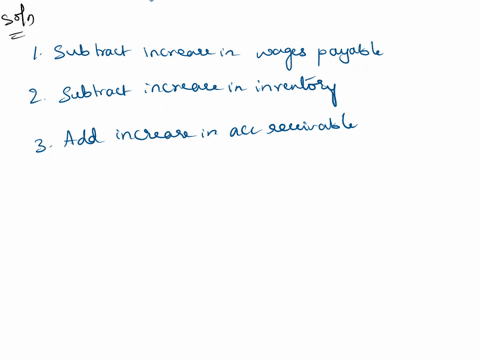 Soln
1. Subtract increase in wages payable
2. Subtract increase in inventory
3. Add increase in acc receivable